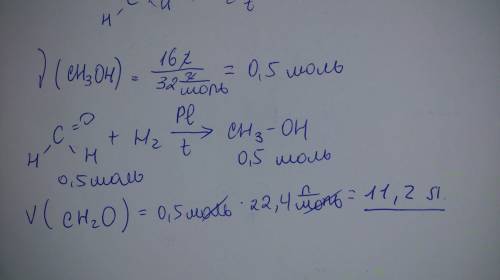 H H t
ν(CH₃OH) = 16г / 32 г/моль = 0,5 моль
H C =O H + H₂ Pt → t CH₃-OH
0,5 моль 0,5 моль
V(CH₂O) = 0,5 моль · 22,4 л/моль = 11,2 л.